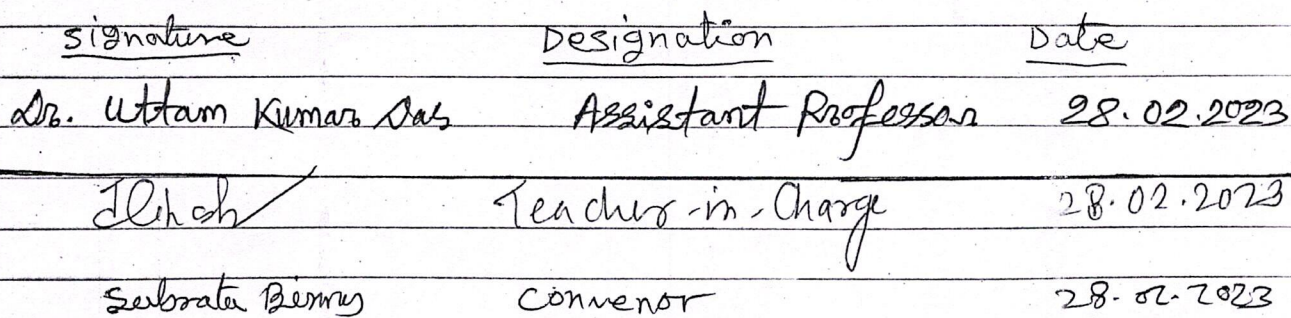 Signature Designation Date
Dr. Uttam Kumar Das Assistant Professor 28.02.2023
Teacher-in-Charge 28.02.2023
Subrata Convenor 28.02.2023